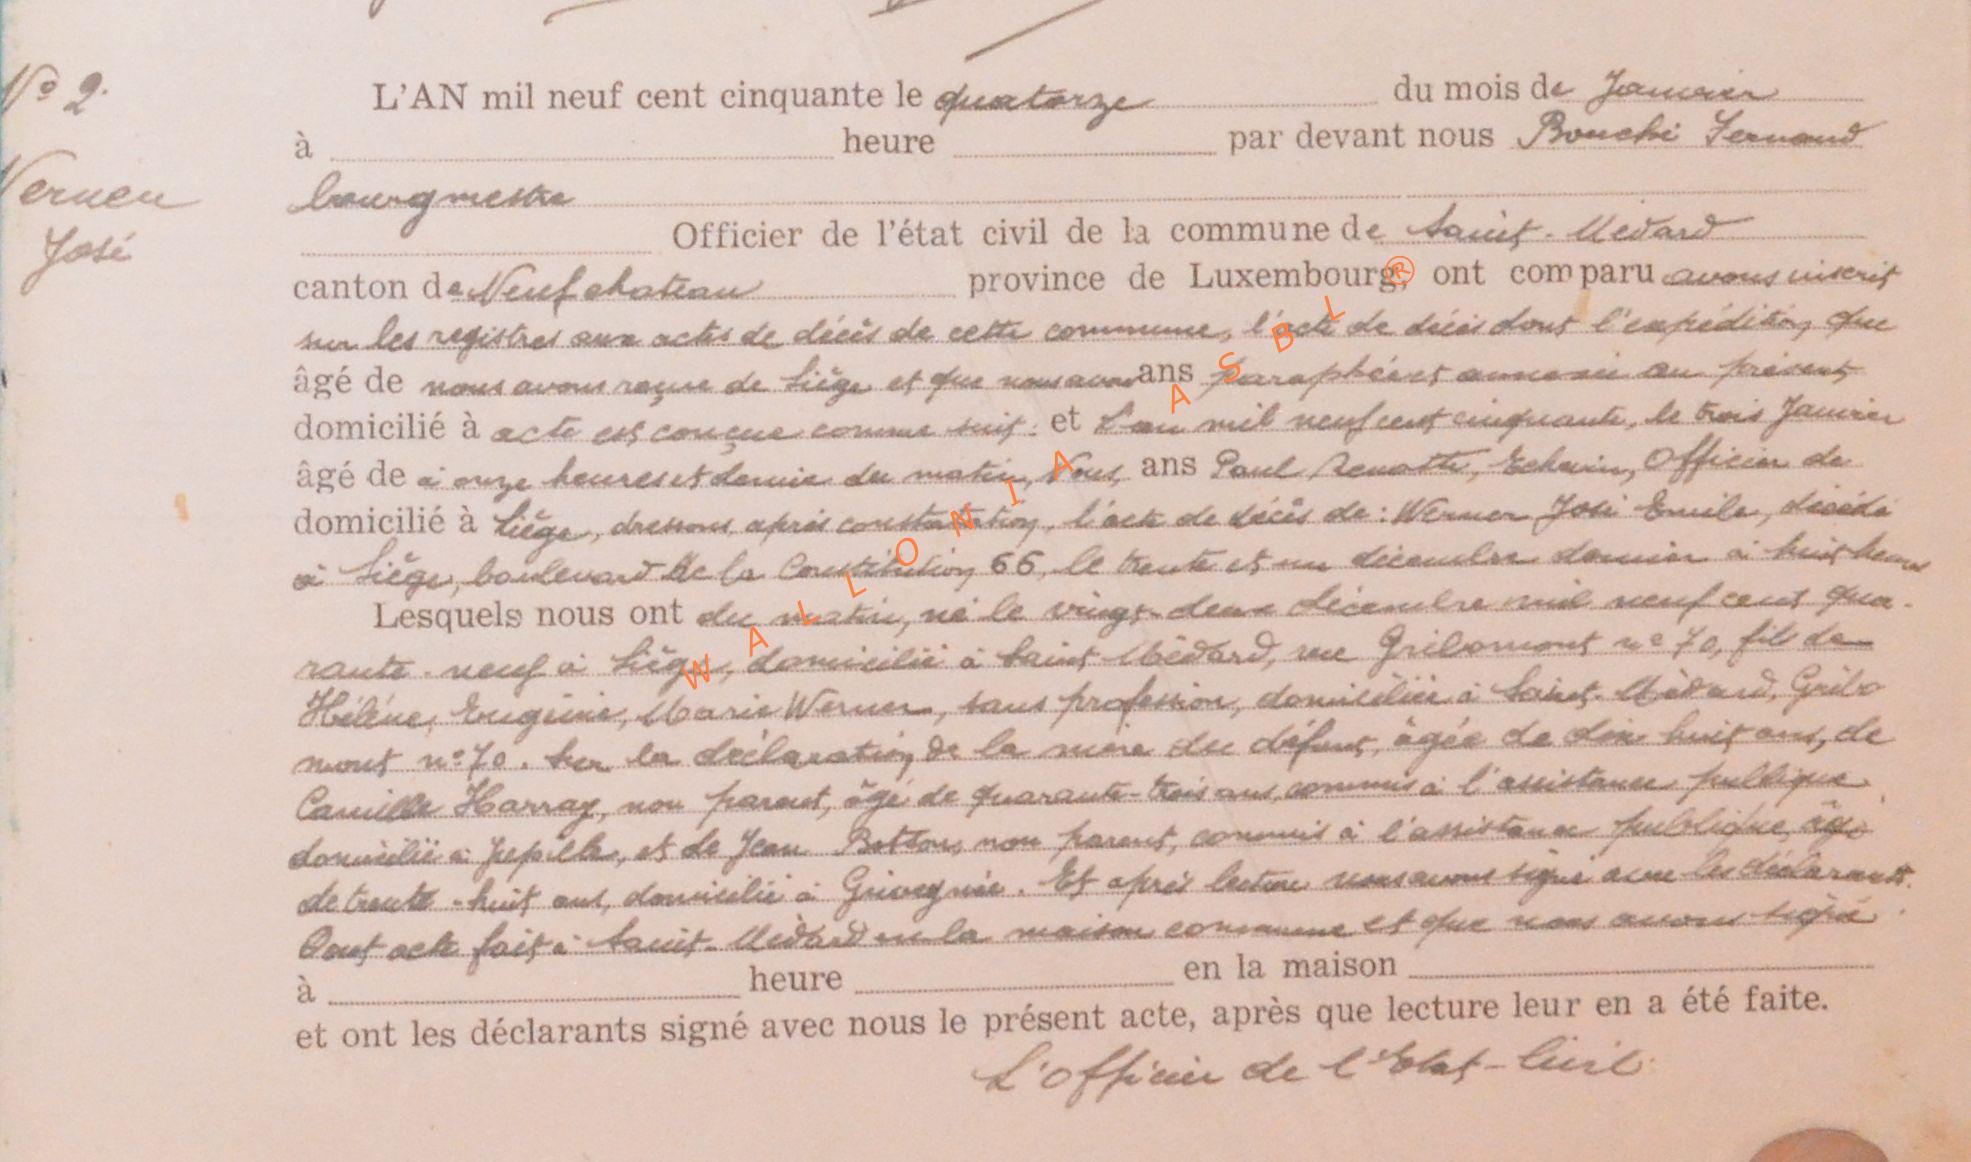 N° 2.
L'AN mil neuf cent cinquante le quatorze du mois de Janvier
à heure par devant nous Bouché Fernand
Werner
bourgmestre
José
Officier de l'état civil de la commune de Saint-Médard
canton de Neufchateau province de Luxembourg, ont comparu avons inscrit
sur les registres aux actes de décès de cette commune, l'acte de décès dont l'expédition que
âgé de nous avons reçue de Liège et que nous avons ans paraphée et annexée au présent
domicilié à acte est conçue comme suit : et L'an mil neuf cent cinquante, le trois Janvier
âgé de à onze heures et demie du matin, Nous, ans Paul Renotte, Echevin, Officier de
domicilié à Liège, dressons après constatation, l'acte de décès de : Werner José Emile, décédé
à Liège, boulevard de la Constitution 66, le trente et un décembre dernier à huit heures
Lesquels nous ont du matin, né le vingt-deux décembre mil neuf cent qua-
rante-neuf à Liège, domicilié à Saint-Médard, rue Gribomont n° 70, fils de
Hélène, Eugénie, Marie Werner, sans profession, domiciliée à Saint-Médard, Gribo
mont n° 70. Sur la déclaration de la mère du défunt, âgée de dix huit ans, de
Camille Harray, non parent, âgé de quarante-trois ans, commis à l'assistance publique
domicilié à Jupille, et de Jean Bottons, non parent, commis à l'assistance publique, âgé
de trente-huit ans, domicilié à Grivegnée. Et après lecture nous avons signé avec les déclarants.
Dont acte fait à Saint-Médard en la maison commune et que nous avons signé
à heure en la maison
et ont les déclarants signé avec nous le présent acte, après que lecture leur en a été faite.
L'Officier de l'Etat-Civil
WALLONIA ASBL ®